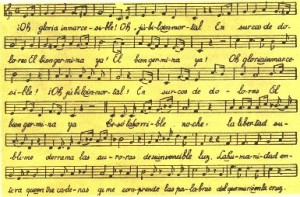 ¡Oh gloria inmarce-
si-ble! ¡Oh jú-bilo in-mor-tal! En surcos de do-
lores El bien ger-mi-na ya! El bien ger-mi-na ya! Oh gloria inmarce-
si-ble! ¡Oh jú-bi-lo in-mor-tal! En sur-cos de do-lo-res El
bien ger-mi-na ya Ce-só la ho-rri-ble no-che. la libertad su-
bli-me derrama las au-ro-ras de su invencible luz. La hu-ma-ni-dad en-
tera que en-tre ca-de-nas gi-me com-prende las pa-labras del que murió en la cruz.